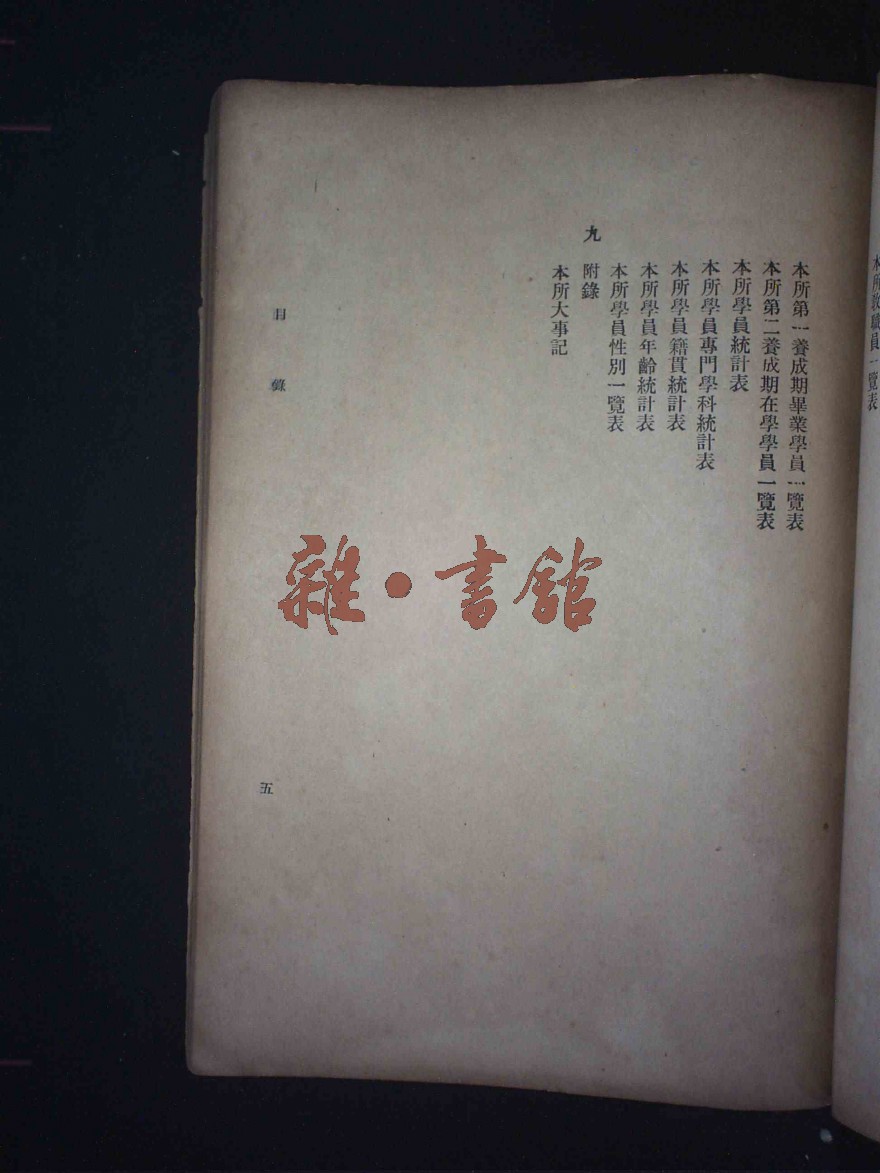 本所教職員一覽表
本所第一養成期畢業學員一覽表
本所第二養成期在學學員一覽表
本所學員統計表
本所學員專門學科統計表
本所學員籍貫統計表
本所學員年齡統計表
本所學員性別一覽表
九 附錄
本所大事記
目錄
五
雜·書館